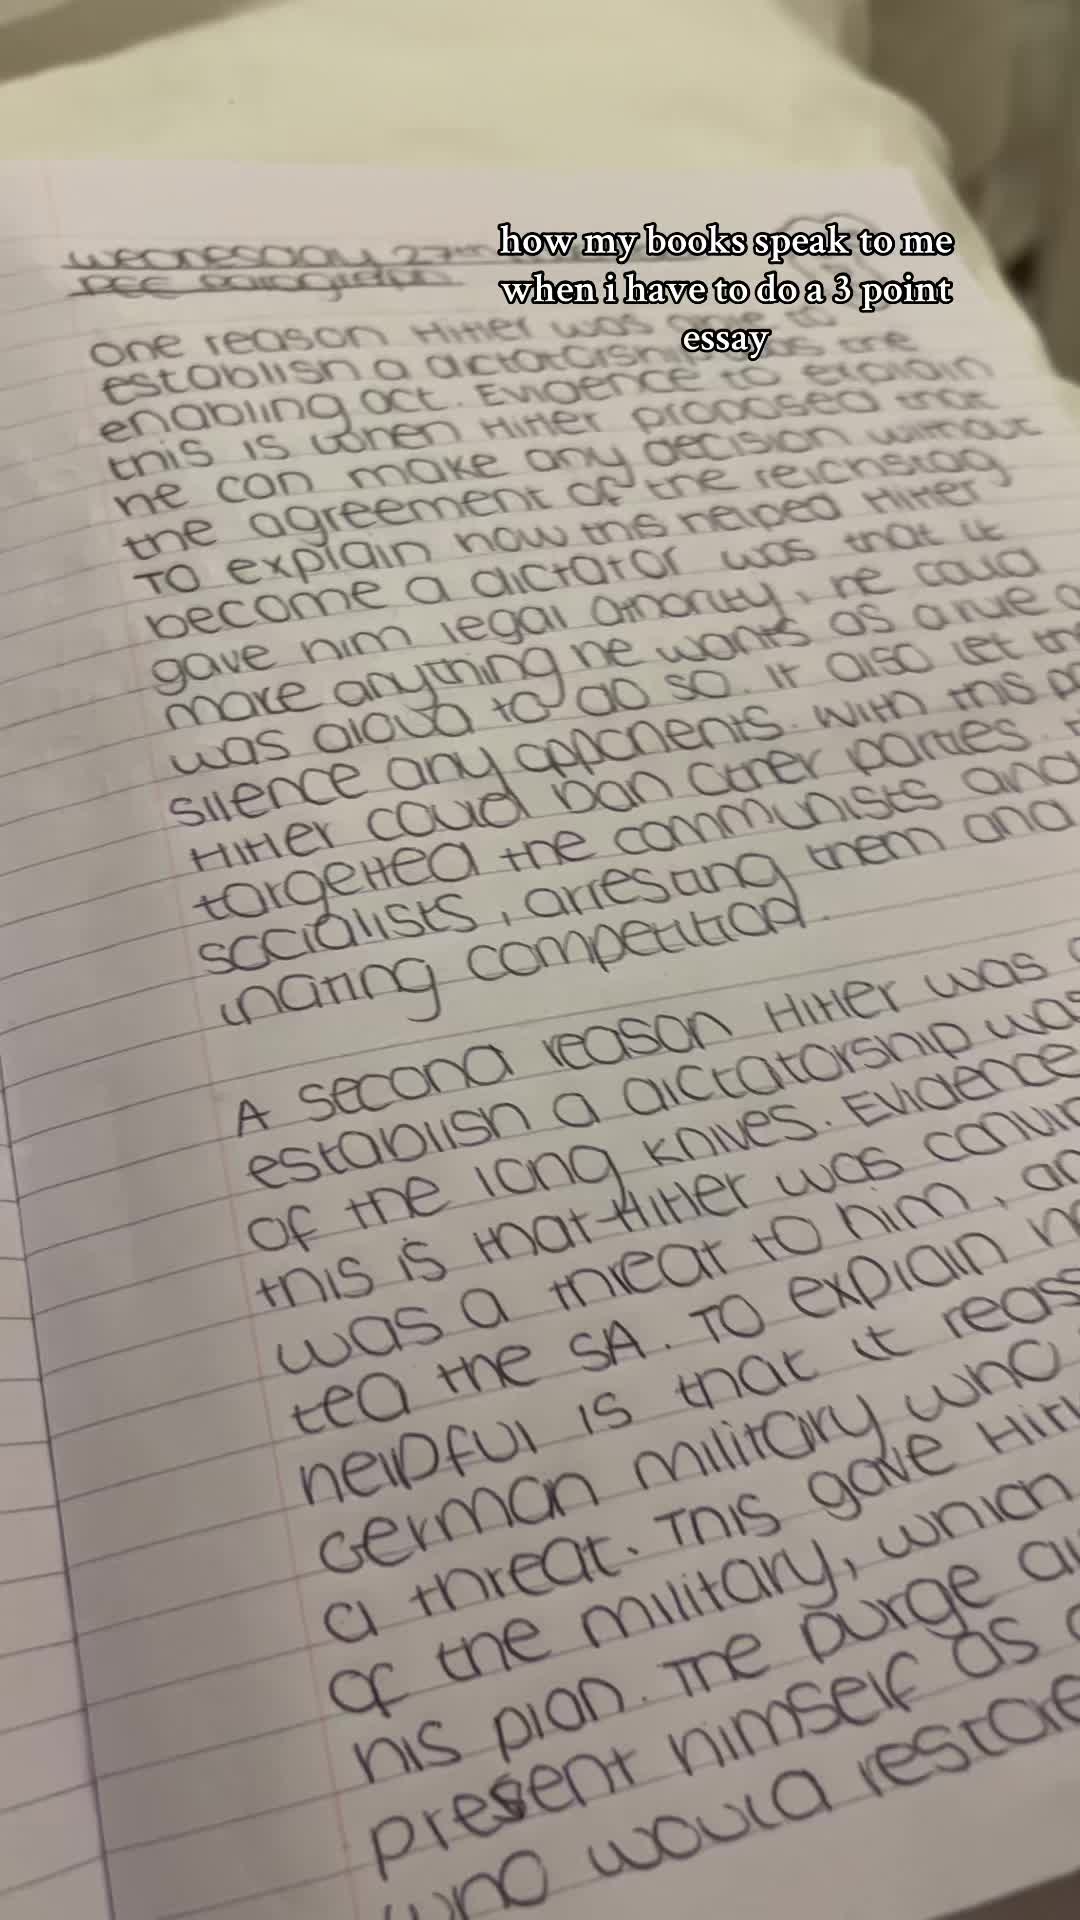 how my books speak to me
when i have to do a 3 point
essay
wednesday 27th
PEE paragraphs
one reason Hitler was able to
establish a dictatorship was the
enabling act. Evidence to explain
this is when Hitler proposed that
he can make any decision without
the agreement of the reichstag
TO explain how this helped Hitler
become a dictator was that it
gave him legal athority, he could
make anything he wants as a rule a
was aloud to do so. it also let
silence any opponents. With this
Hitler could ban other parties.
targetted the communists and
socialists, arresting them and
competition.
A second reason Hitler was
establish a dictatorship was
of the long knives. Evidence
this is that Hitler was
was a threat to him,
led the SA. TO explain
helpful is that it
German military who
a threat. This gave
of the military, which
his plan. The purge
present himself as a
who would restore